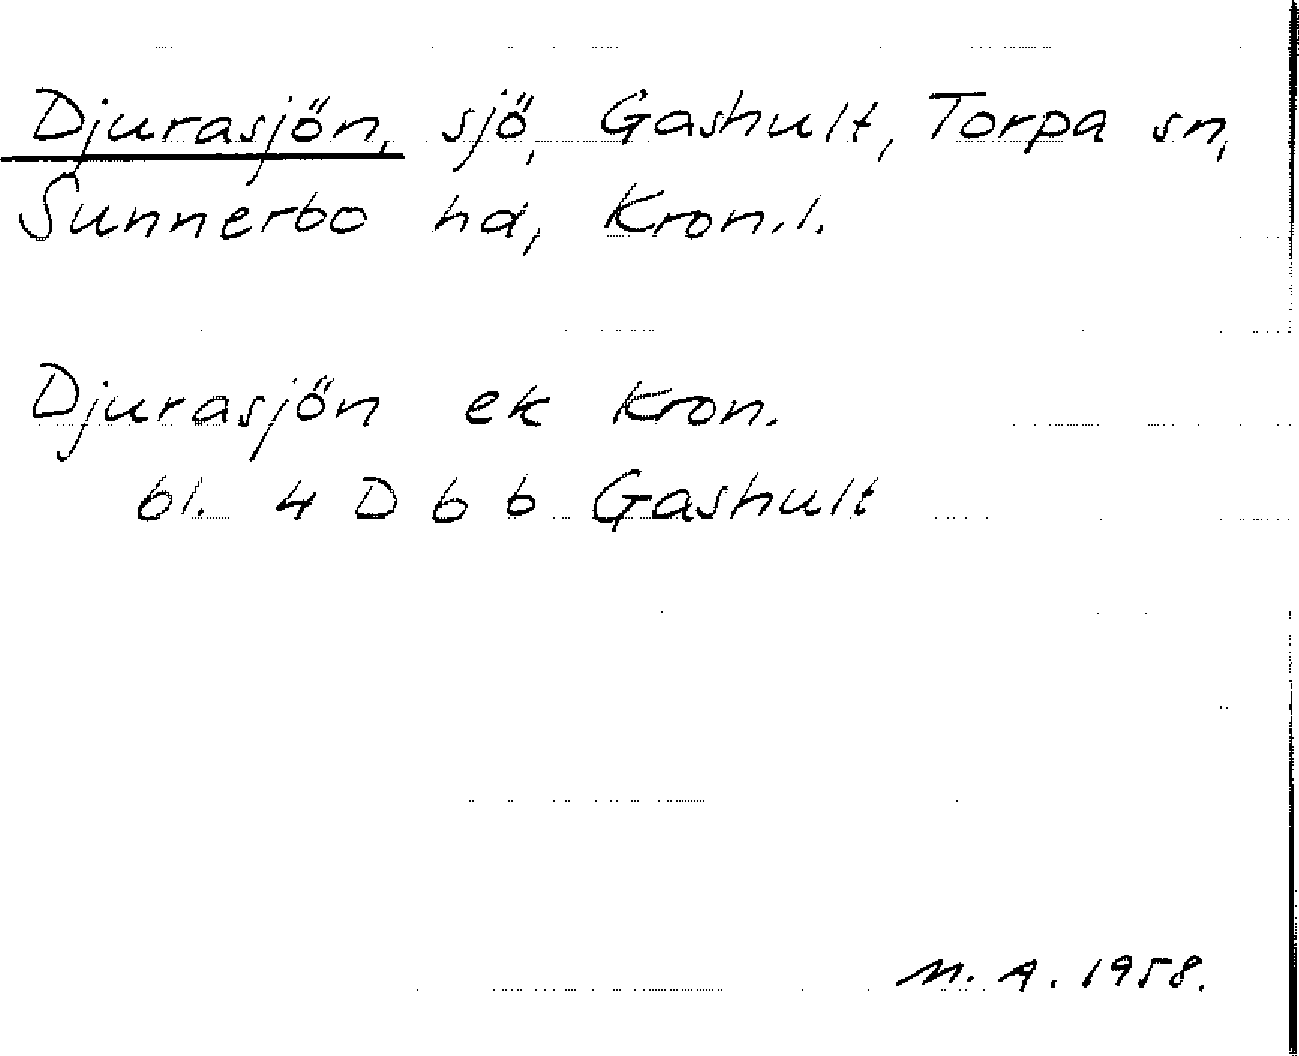 Djurasjön, sjö, Gashult, Torpa sn,
Sunnerbo hd, Kron.l.
Djurasjön ek Kron.
bl. 4 D 6 b Gashult
M. A. 1958.